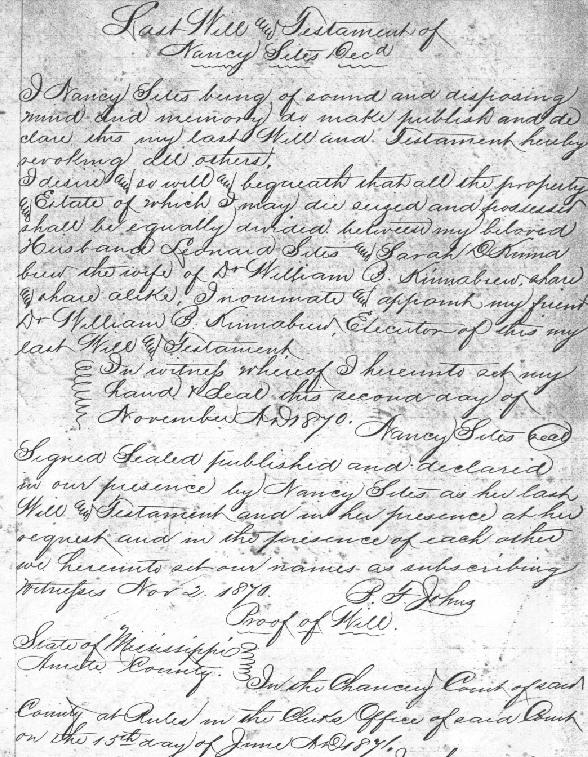 Last Will and Testament of
Nancy Sites Decd
I Nancy Sites being of sound and disposing
mind and memory do make publish and de
clare this my last Will and Testament hereby
revoking all others;
I desire and so will and bequeath that all the property
and Estate of which I may die seized and possessed
shall be equally divided between my beloved
Husband Leonard Sites and Sarah O Kinna
brew the wife of Dr William B. Kinnabrew, share
and share alike, I nominate and appoint my friend
Dr William B. Kinnabrew, Executor of this my
last Will and Testament
In witness whereof I hereunto set my
hand & Seal this second day of
November A.D 1870.
Nancy Sites seal
Signed Sealed published and declared
in our presence by Nancy Sites as her last
Will and Testament and in her presence at her
request and in the presence of each other
we hereunto set our names as subscribing
witnesses Nov 2. 1870.
P. F Johns
Proof of Will.
State of Mississippi
Amite County.
In the Chancery Court of said
County at Rules in the Clerks Office of said Court
on the 15th day of June A.D 1871.